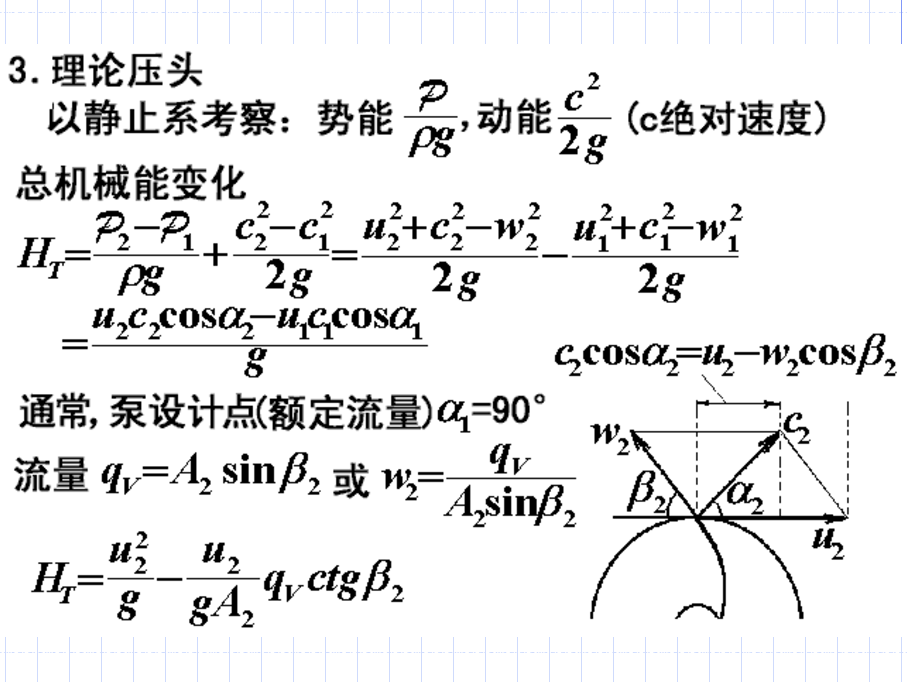 3.理论压头
以静止系考察：势能 𝒫/ρg，动能 c²/2g (c绝对速度)
总机械能变化
H_T=(𝒫₂−𝒫₁)/ρg+(c₂²−c₁²)/2g=(u₂²+c₂²−w₂²)/2g−(u₁²+c₁²−w₁²)/2g
=(u₂c₂cosα₂−u₁c₁cosα₁)/g
c₂cosα₂=u₂−w₂cosβ₂
通常,泵设计点(额定流量)α₁=90°
流量 q_V=A₂ sinβ₂ 或 w₂=q_V/(A₂sinβ₂)
H_T=u₂²/g−(u₂/gA₂)q_V ctgβ₂
w₂
c₂
β₂
α₂
u₂